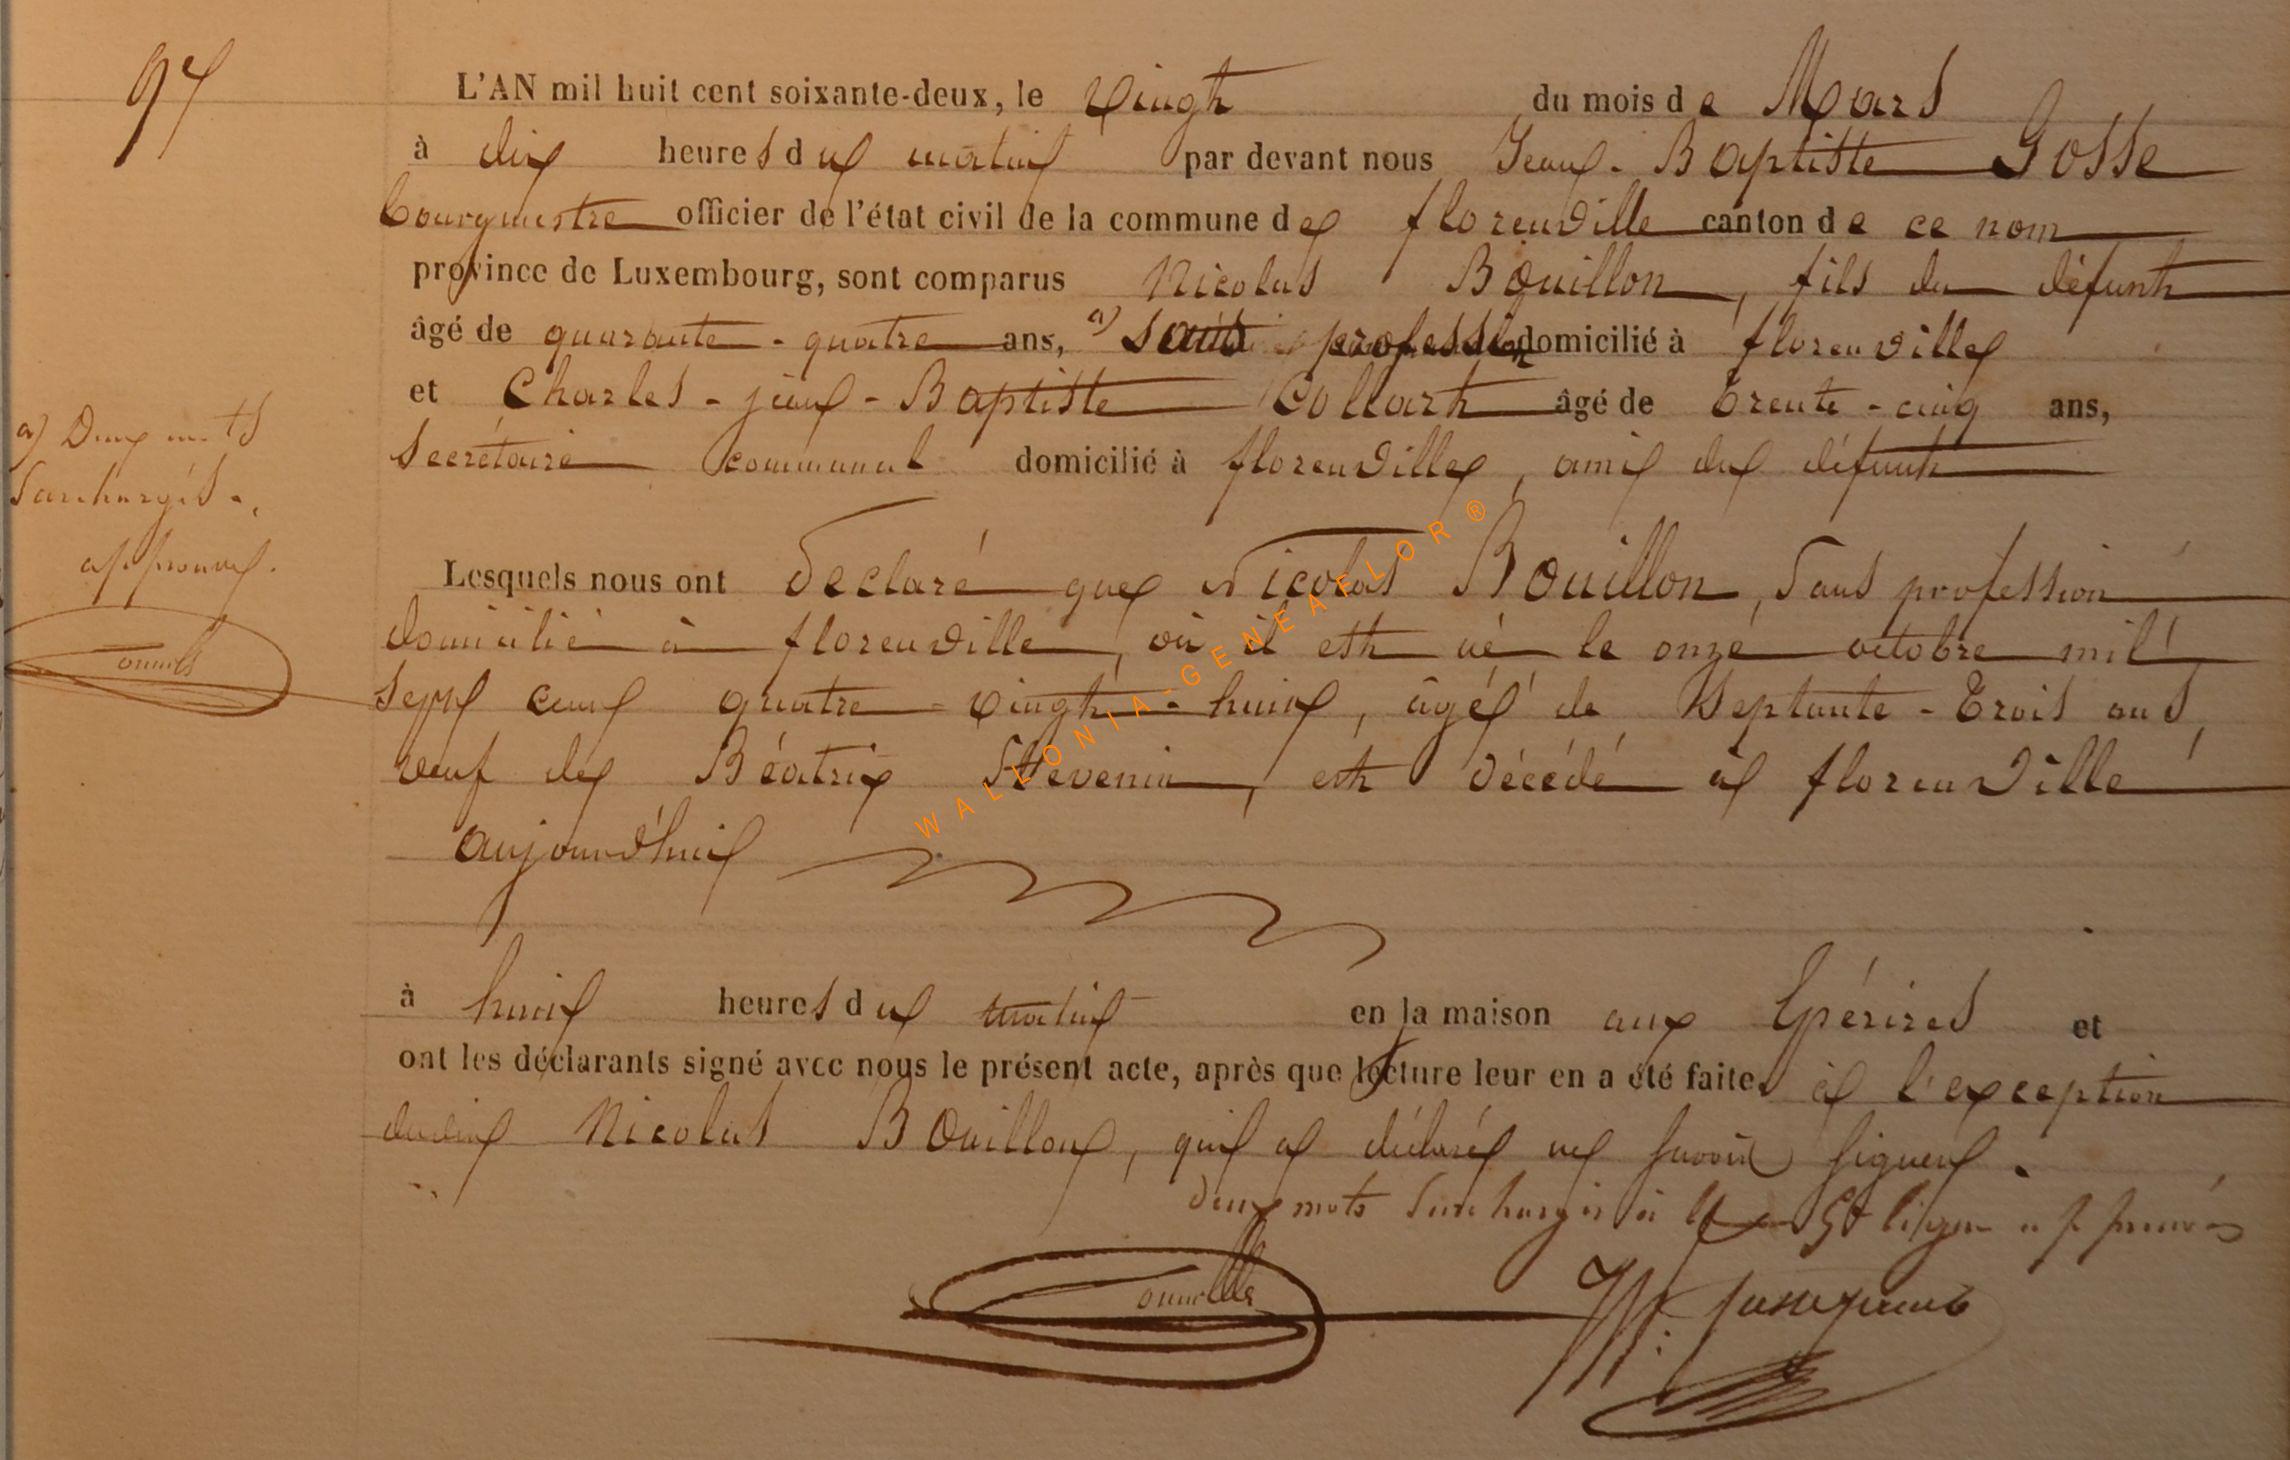 97
L'AN mil huit cent soixante-deux, le vingt du mois de Mars
à dix heures du matin par devant nous Jean-Baptiste Gosse
bourgmestre officier de l'état civil de la commune de florenville canton de ce nom
province de Luxembourg, sont comparus Nicolas Bouillon, fils du défunt
âgé de quarante-quatre ans, a) sans profession domicilié à florenville
et Charles-jean-Baptiste Collart âgé de trente-cinq ans,
secrétaire communal domicilié à florenville, ami du défunt
a) Deux mots
surchargés.
approuvé.
Lesquels nous ont déclaré que Nicolas Bouillon, sans profession
domicilié à florenville, où il est né le onze octobre mil
sept cent quatre-vingt-huit, âgé de septante-trois ans,
veuf de Béatrix Stevenin, est décédé à florenville
aujourd'hui
WALLONIA-GENEAFLOR®
à huit heures du matin en la maison aux Epérires et
ont les déclarants signé avec nous le présent acte, après que lecture leur en a été faite. à l'exception
dudit Nicolas Bouillon, qui a déclaré ne savoir signer.
deux mots surchargés à la 5e ligne approuvés